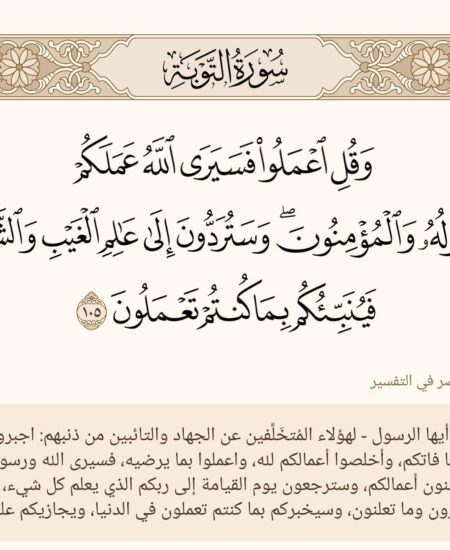 سُورَةُ التَّوۡبَةِ
وَقُلِ ٱعۡمَلُواْ فَسَيَرَى ٱللَّهُ عَمَلَكُمۡ
وَٱلۡمُؤۡمِنُونَۖ وَسَتُرَدُّونَ إِلَىٰ عَٰلِمِ ٱلۡغَيۡبِ
فَيُنَبِّئُكُم بِمَا كُنتُمۡ تَعۡمَلُونَ ١٠٥
في التفسير
أيها الرسول - لهؤلاء المُتخَلِّفين عن الجهاد والتائبين من ذنبهم: اجبرو
فاتكم، وأخلصوا أعمالكم لله، واعملوا بما يرضيه، فسيرى الله ورسو
أعمالكم، وسترجعون يوم القيامة إلى ربكم الذي يعلم كل شيء،
وما تعلنون، وسيخبركم بما كنتم تعملون في الدنيا، ويجازيكم